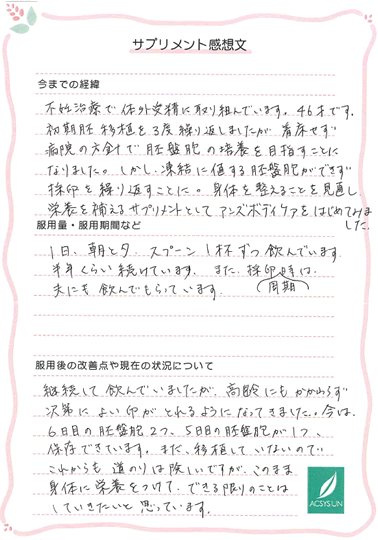 サプリメント感想文
今までの経緯
不妊治療で体外受精に取り組んでいます。46才です。
初期胚移植を3度繰り返しましたが着床せず
病院の方針で胚盤胞の培養を目指すことに
なりました。しかし、凍結に値する胚盤胞ができず
採卵を繰り返すことに。身体を整えることを見直し
栄養を補えるサプリメントとしてアンズボディケアをはじめてみま
した。
服用量・服用期間など
1日、朝と夕、スプーン1杯ずつ飲んでいます。
半年くらい続けています。また、採卵時は、
周期
夫にも飲んでもらっています。
服用後の改善点や現在の状況について
継続して飲んでいましたが、高齢にもかかわらず
次第によい卵がとれるようになってきました。今は、
6日目の胚盤胞2つ、5日目の胚盤胞が1つ、
保存できています。まだ、移植していないので
これからも道のりは険しいですが、このまま
身体に栄養をつけて、できる限りのことは
していきたいと思っています。
ACSYSUN